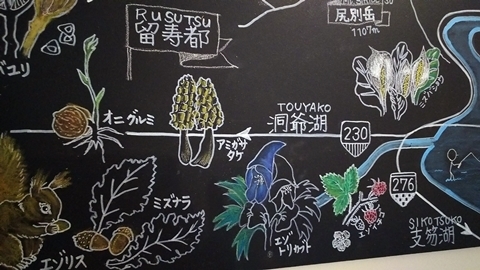 RUSUTSU
留寿都
尻別岳
1107m
バユリ
ミズバショウ
オニグルミ
アミガサ
タケ
TOUYAKO
洞爺湖
230
ミズナラ
276
エゾ
トリカブト
エゾイチゴ
SIKOTSUKO
支笏湖
エゾリス